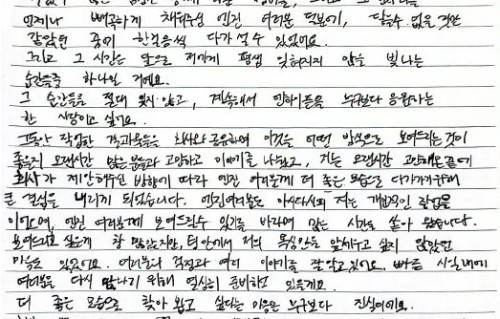 언제나 빼곡하게 채워주신 엔진 여러분 덕분에, 닿을수 없을 것만
같았던 꿈에 한걸음씩 다가설 수 있었어요.
그리고 그 시간은 앞으로 저에게 평생 잊혀지지 않을 빛나는
순간들중 하나일 거예요.
그 순간들을 절대 잊지 않고, 계속해서 멤버들을 누구보다 응원하는
한 사람이고 싶어요.
그동안 작업한 결과물들을 회사와 공유하며 이것을 어떤 방식으로 보여드리는 것이
좋을지 오랜시간 많은 분들과 고민하고 이야기를 나눴고, 저는 오랜시간 고민해온 끝에
회사가 제안해주신 방향에 따라 엔진 여러분께 더 좋은 모습으로 다가가기위해
큰 결심을 내리게 되었습니다. 엔진여러분도 아시다시피 저는 개인적인 작업을
이어오며, 엔진 여러분께 보여드릴수 있기를 바라며 많은 시간을 쏟아 왔습니다.
보여드리고 싶은게 참 많았지만, 팀 안에서 저의 욕심만을 앞세우고 싶지 않았던
마음도 있었어요. 여러분의 걱정과 여러 이야기를 잘 알고 있어요. 빠른 시일내에
여러분을 다시 만나기 위해 열심히 준비하고 있을게요.
더 좋은 모습으로 찾아 뵙고 싶다는 마음은 누구보다 진심이에요.